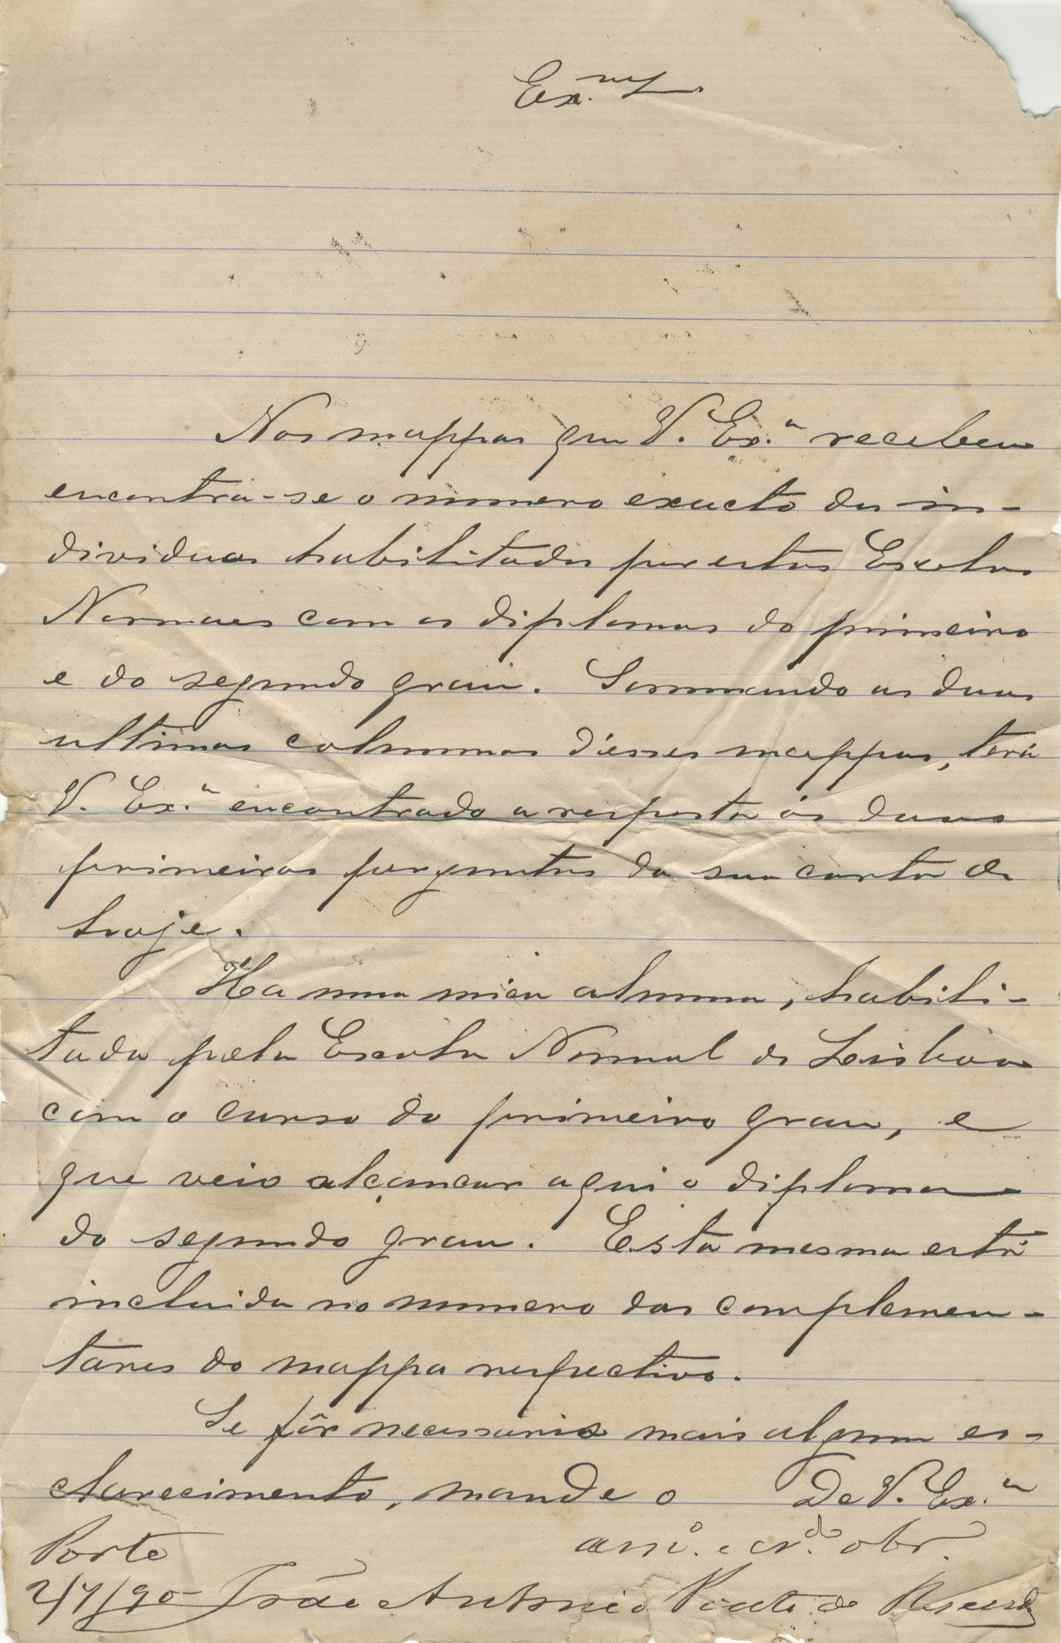 Ex.mo
Nos mappas que V. Ex.a recebeu
encontra-se o numero exacto dos in-
dividuos habilitados por estas Escolas
Normaes com os diplomas do primeiro
e do segundo grau. Sommando as duas
ultimas columnas d'esses mappas, terá
V. Ex.a encontrado a resposta ás duas
primeiras perguntas da sua carta de
hoje.
Ha uma minha alumna, habili-
tada pela Escola Normal de Lisboa
com o curso do primeiro grau, e
que veio alcançar aqui o diploma
do segundo grau. Esta mesma está
incluida no numero das complemen-
tares do mappa respectivo.
Se fôr necessario mais algum es-
clarecimento, mande o De V. Ex.a
am.o e cr.do obr.
Porto
2/7/90 João Antonio de